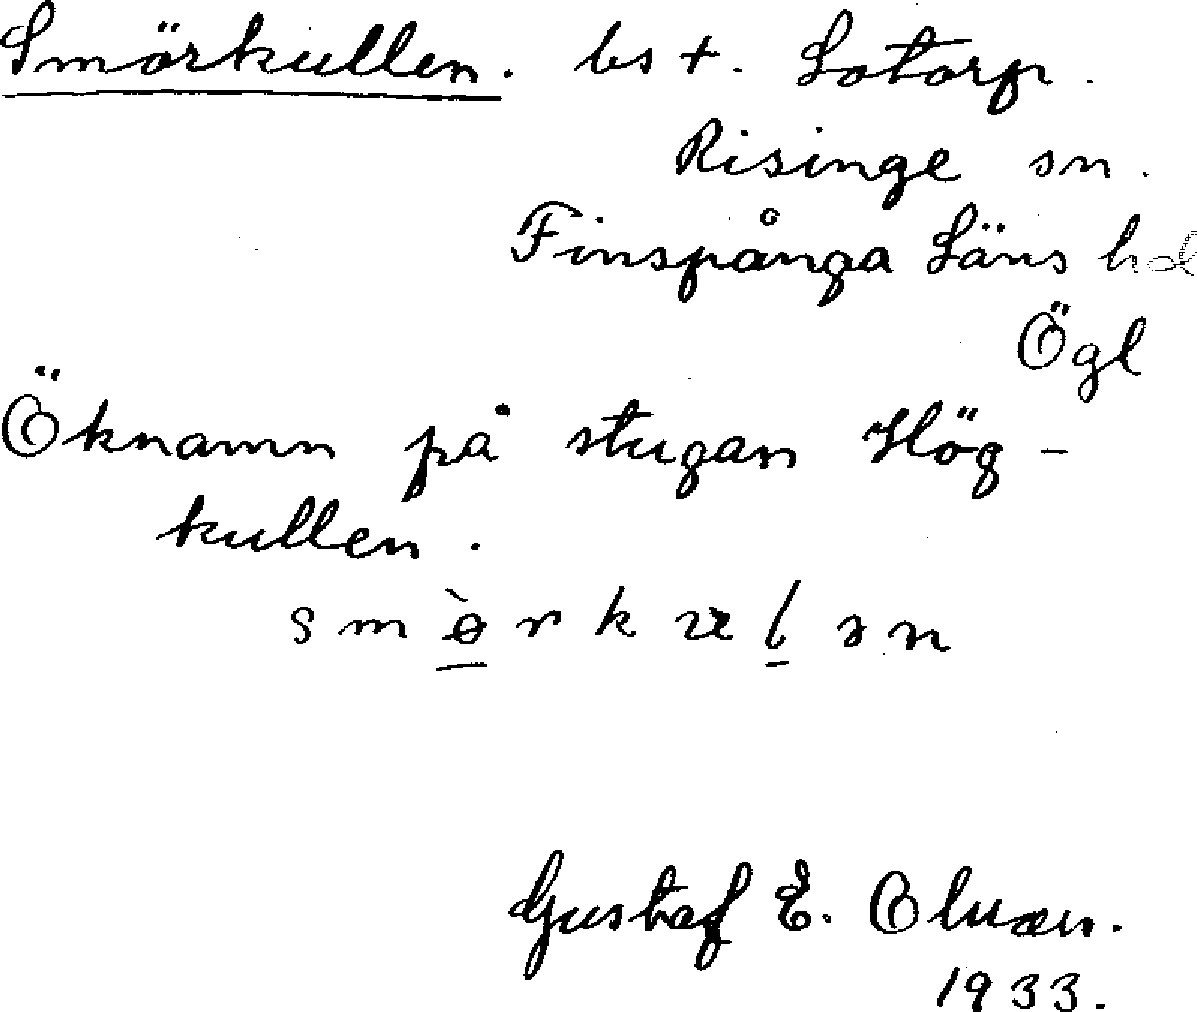 Smörkullen. bst. Lotorp.
Risinge sn.
Finspånga Läns hd
Ögl
Öknamn på stugan Hög-
kullen.
Gustaf E.
1933.